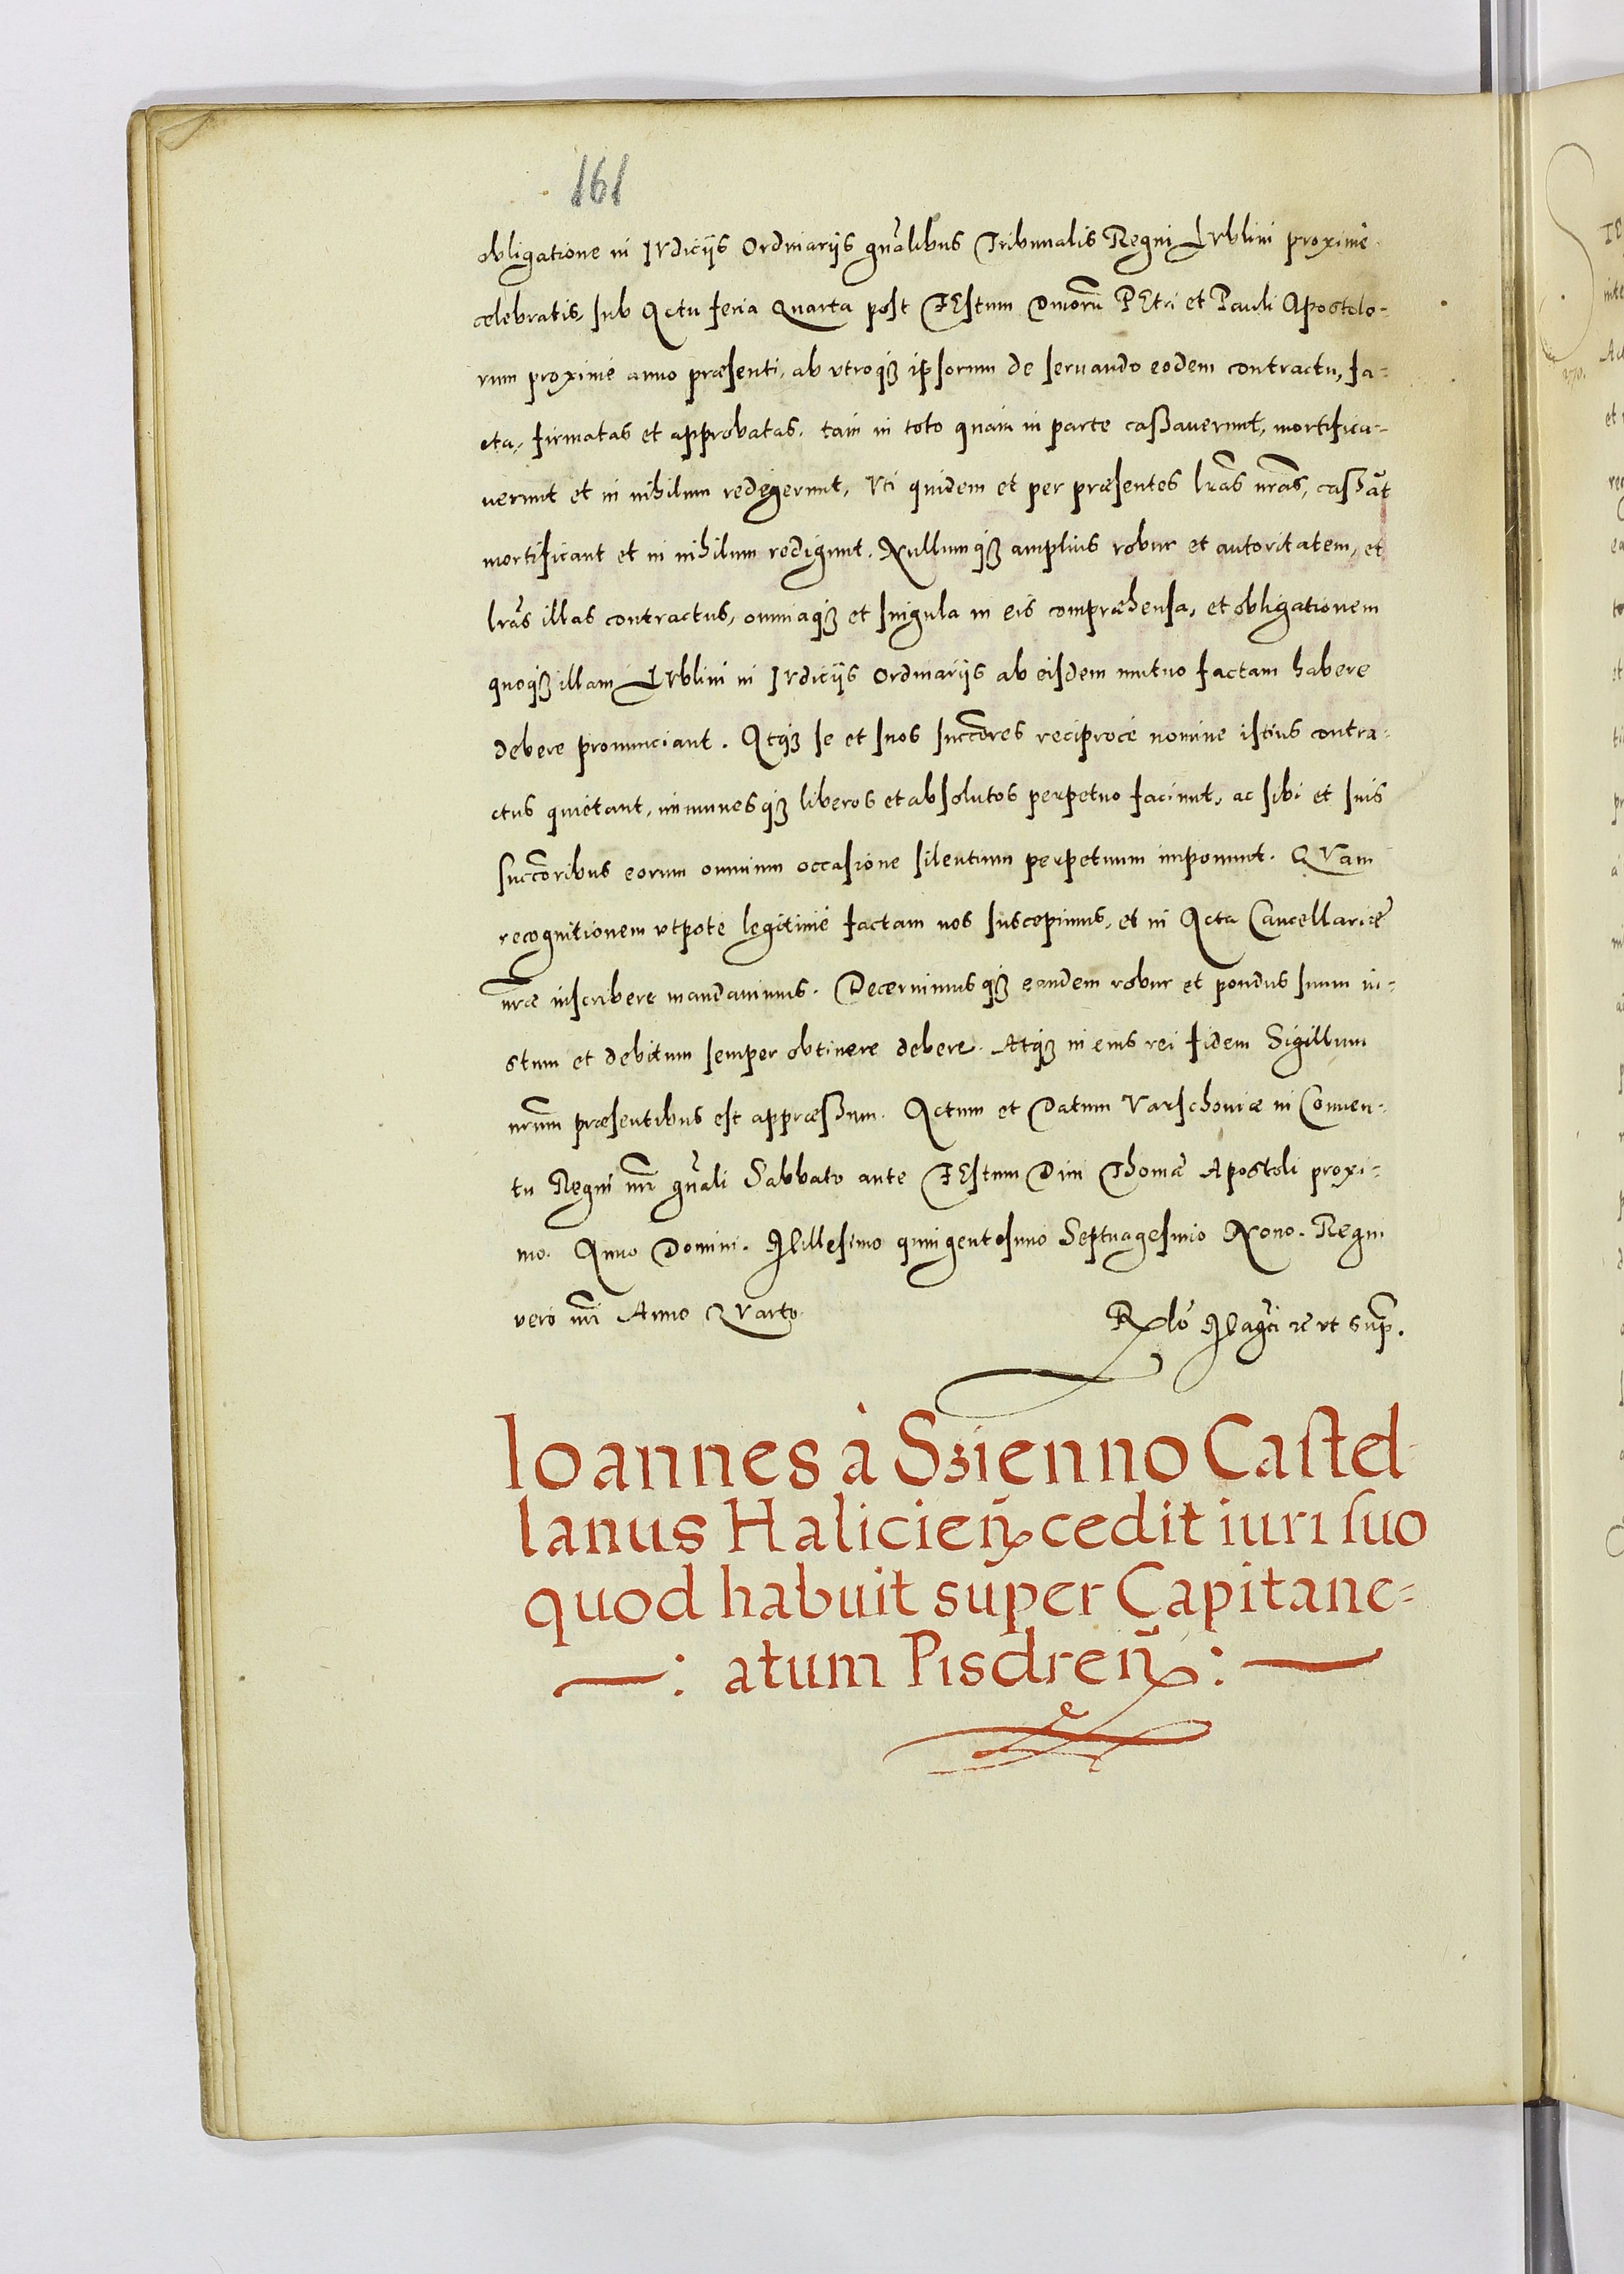 161
obligatione in IVdiciis Ordinariis gnãlibus Tribunalis Regni LVblini proximè
celebratis, sub Actu feria Quarta post FEstum Diuorũ PEtri et Pauli Apostolo-
rum proximè anno præsenti, ab vtroqꝫ ipsorum de seruando eodem contractu, fa-
cta, firmatas et approbatas, tam in toto quàm in parte cassauerunt, mortifica-
uerunt et in nihilum redegerunt, Vti quidem et per præsentes lrãs nrãs, cassãt
mortificant et in nihilum redigunt. Nullumqꝫ amplius robur et autoritatem, et
lrãs illas contractus, omniaqꝫ et singula in eis compræhensa, et obligationem
quoqꝫ illam LVblini in IVdiciis Ordinariis ab eisdem mutuo factam habere
debere pronunciant. Atqꝫ se et suos succõres reciprocè nomine istius contra-
ctus quietant, immunesqꝫ liberos et absolutos perpetuo faciunt, ac sibi et suis
succõribus eorum omnium occasione silentium perpetuum imponunt. QVam
recognitionem vtpote legitimè factam nos suscepimus, et in Acta Cancellariæ
nr̃æ inscribere mandauimus. Decernimusqꝫ eandem robur et pondus suum iu-
stum et debitum semper obtinere debere. Atqꝫ in eius rei fidem Sigillum
nr̃um præsentibus est appræssum. Actum et Datum Varschouiæ in Conuen-
tu Regni nr̃i gnãli Sabbato ante FEstum Diui Thomæ Apostoli proxi-
mo. Anno Domini. Millesimo quingentesimo Septuagesimo Nono. Regni
verò nr̃i Anno QVarto.
Rlõ Magci rc̃ vt sup̃.
Ioannes à Sʒienno Castel-
lanus Halicieñ cedit iuri suo
quod habuit super Capitane-
: atum Pisdreñ :